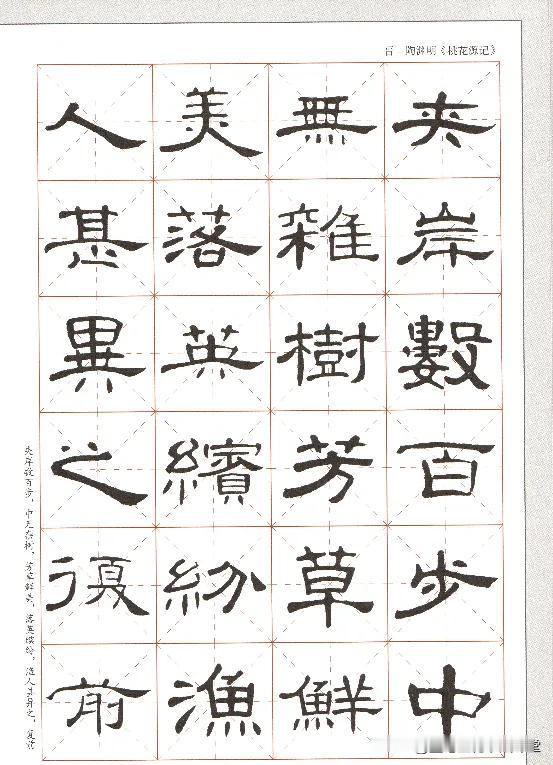 百一 陶渊明《桃花源记》
夹岸數百步中
無雜樹芳草鮮
美落英繽紛漁
人甚異之復前
夹岸数百步，中无杂树，芳草鲜美，落英缤纷，渔人甚异之，复前